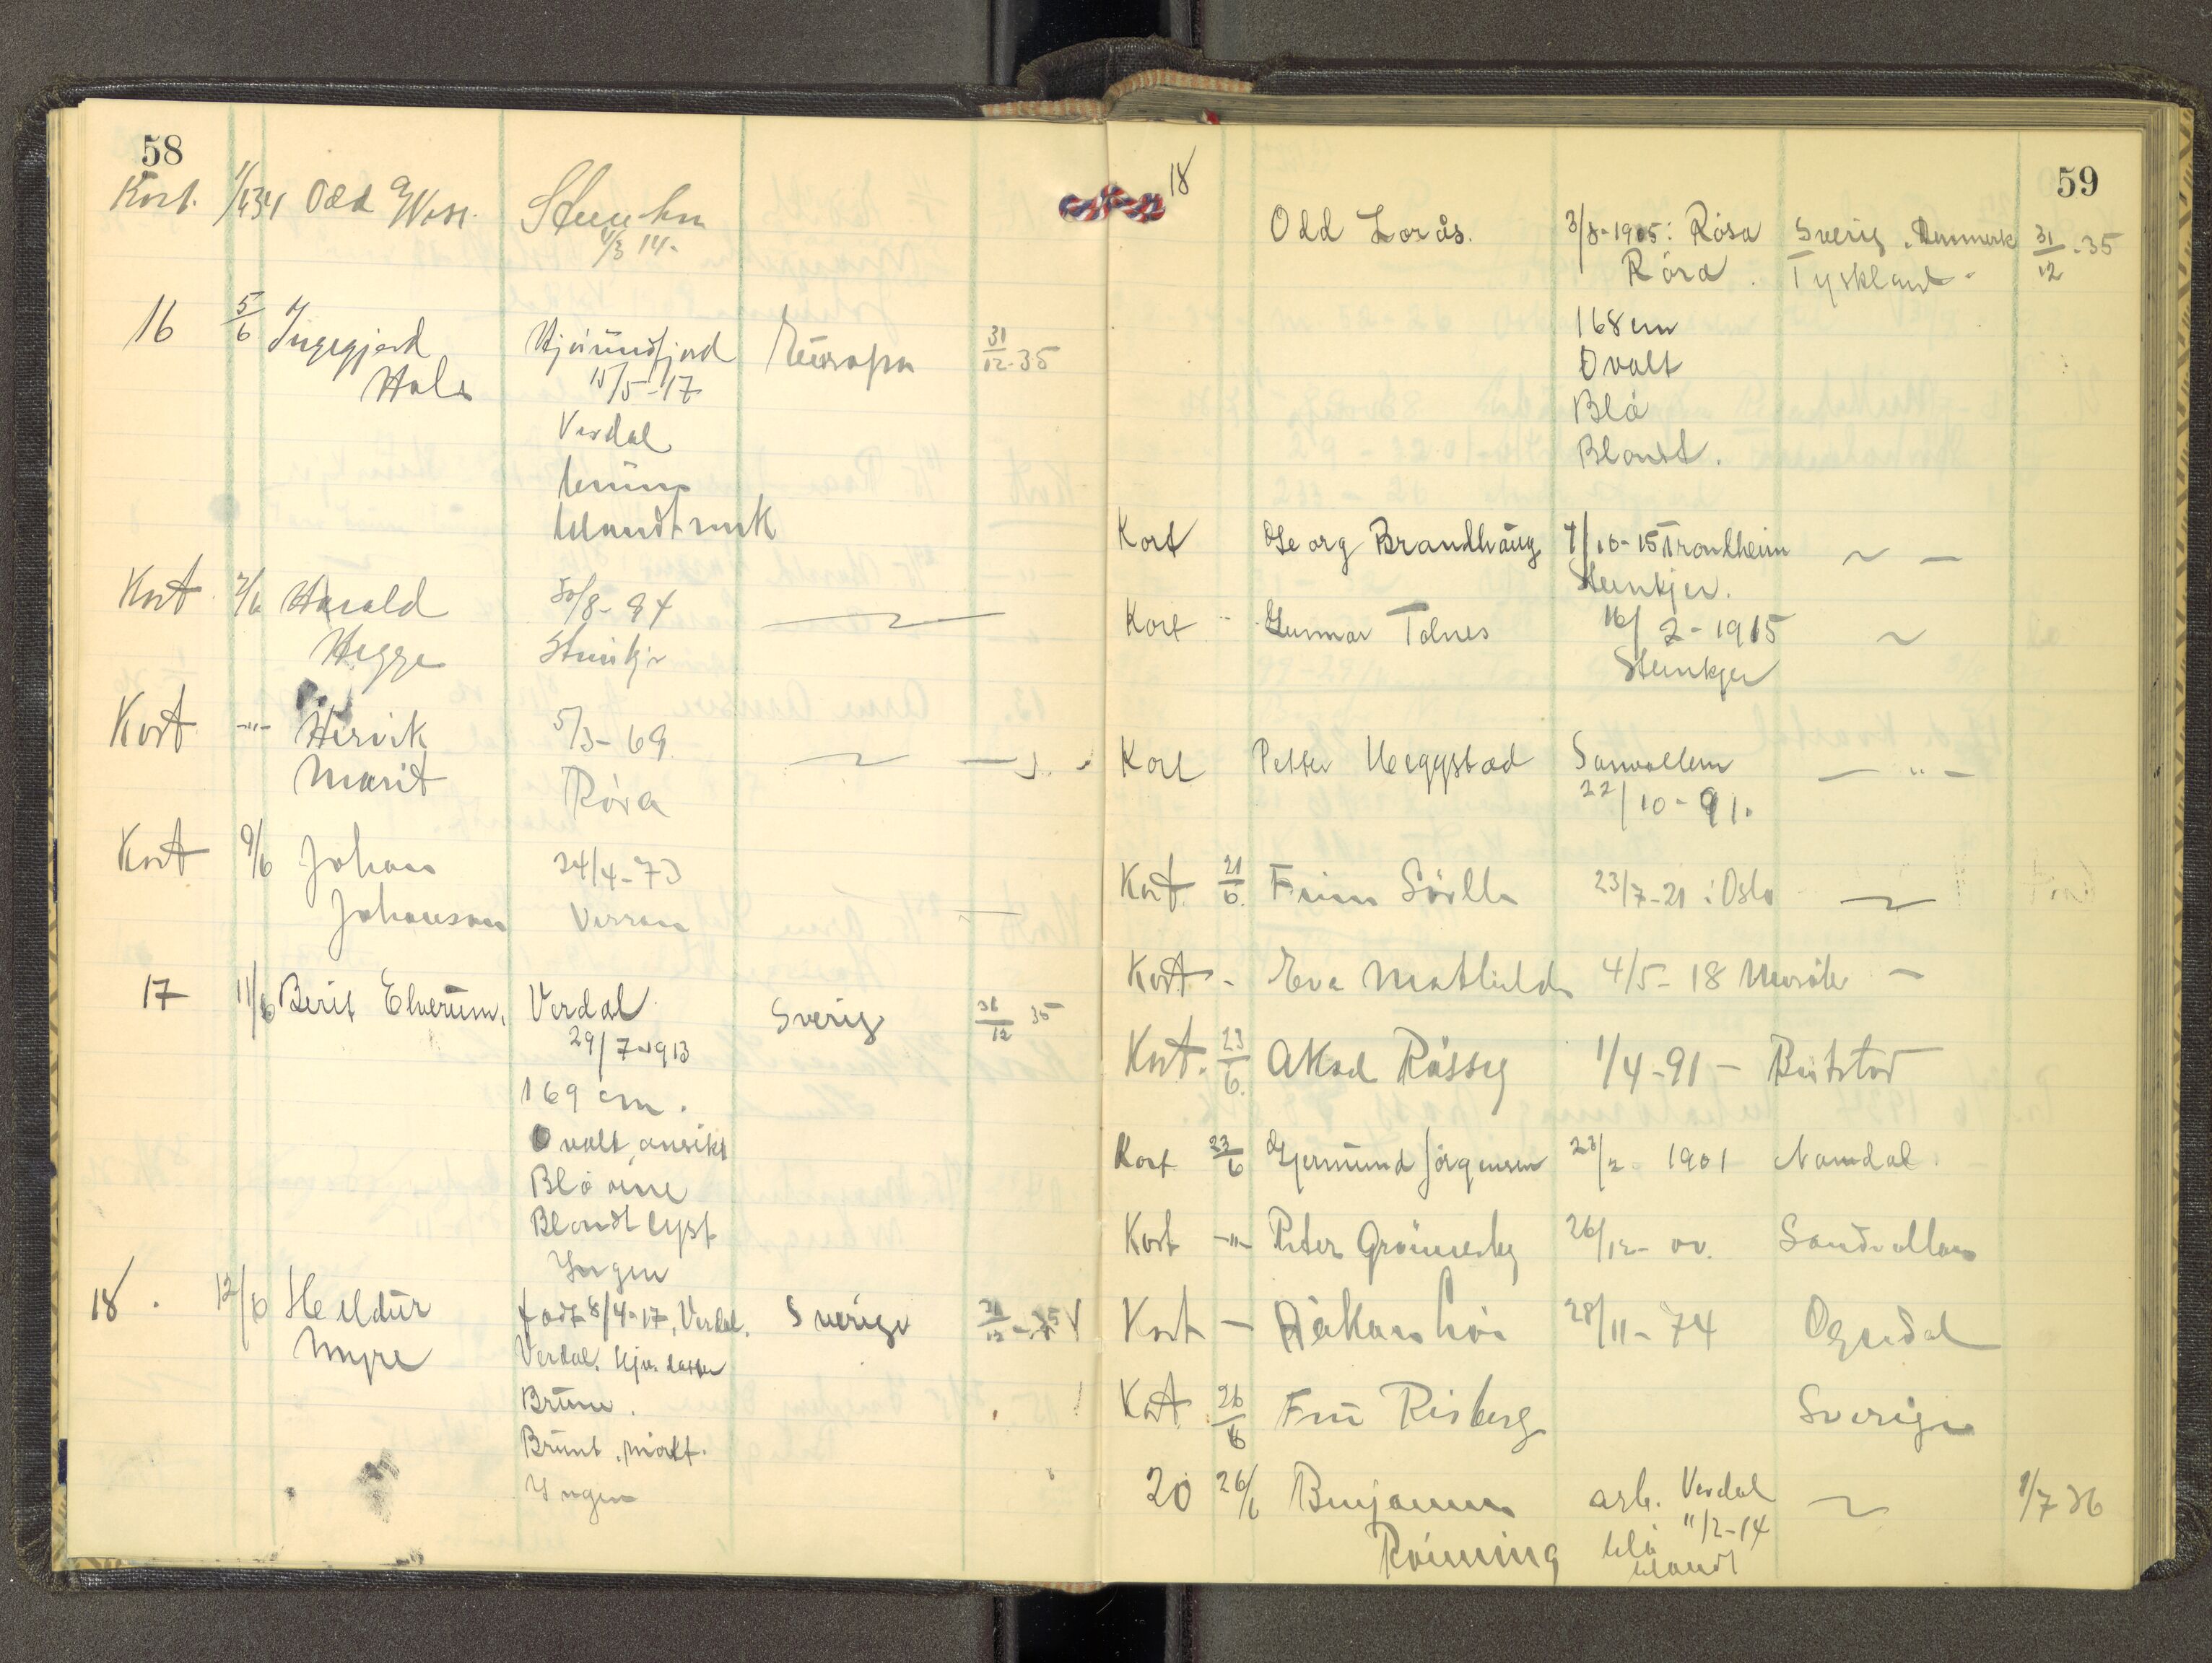 58
Kort. 1/6 34 Odd
1/3 14-
16 5/6 Ingegjerd Hjörundfjord Europa 31/12-35
Hals 15/5-17
Verdal
bruns
blandt mrk
Kort 7/6 Harald 30/8-84
Hegge Steinkjr
Kort -"- Hervik 5/3-69
Marit Röra
Kort 9/6 Johan 24/4-73
Johansen Verran
17 11/6 Berit Elverum. Verdal Sverig 31/12 35
29/7-1913
169 cm.
Ovalt ansikt
Blå öine
Blondt lyst
Ingen
18. 12/6 Heildur født 8/4-17, Verdal. Sverige 31/12-35
Myre Verdal. Hjv. datter
Brune.
Brunt, mørkt.
Ingen
59
18
Odd Lorås. 3/8-1915: Röra Sverig. Danmark 31/12-35
Röra. Tyskland.
168 cm
Ovalt
Blå
Blondt.
Kort Georg Brandhaug 7/10-15 Trondheim ~ —
Steinkjer.
Kort Gunnar Tolnes 16/2-1915 ~
Steinkjer
Kort Petter Heggstad Sanvollan — " —
22/10-91.
Kort 21/6. Finn Sörlle 23/7-21: Oslo ~
Kort - Eva Mathilde 4/5-18 Meråker —
Kort. 23/6. Aksel Råsseg 1/4-91 — Beitstad
Kort 23/6 Gjermund Jörgensen 23/2 1901 Namdal.
Kort -"- Peter Grönnesby 26/12- 00. Sandvollan
Kort — Håkon Lön 28/11-74 Ogndal
Kort 26/6 Fru Risberg Sverige
20 26/6 Benjamin arb. Verdal ~ 1/7 36
11/2-14
Röinning blå
blandt